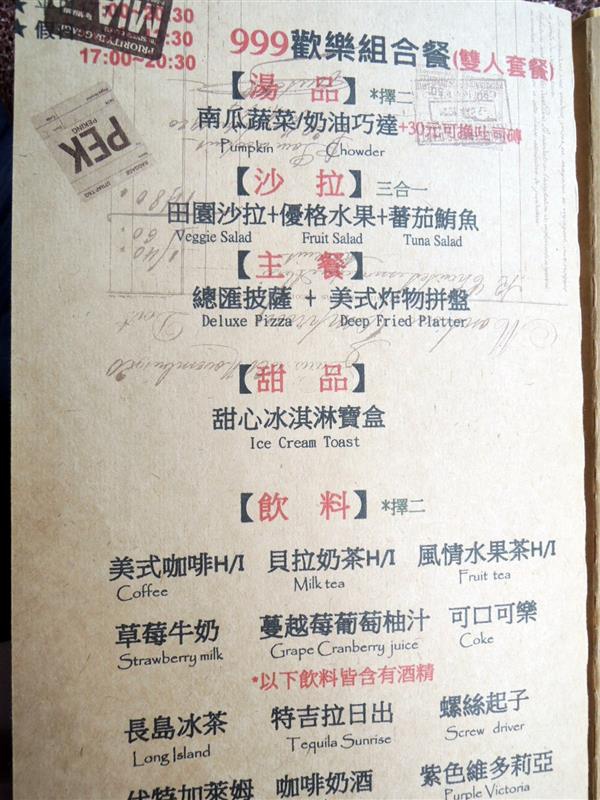 00~20:30
17:00~20:30
999歡樂組合餐(雙人套餐)
【湯 品】 *擇二
南瓜蔬菜/奶油巧達+30元可換吐司磚
Pumpkin Chowder
【沙 拉】 三合一
田園沙拉+優格水果+蕃茄鮪魚
Veggie Salad Fruit Salad Tuna Salad
【主 餐】
總匯披薩 + 美式炸物拼盤
Deluxe Pizza Deep Fried Platter
【甜 品】
甜心冰淇淋寶盒
Ice Cream Toast
【飲 料】 *擇二
美式咖啡H/I 貝拉奶茶H/I 風情水果茶H/I
Coffee Milk tea Fruit tea
草莓牛奶 蔓越莓葡萄柚汁 可口可樂
Strawberry milk Grape Cranberry juice Coke
*以下飲料皆含有酒精
長島冰茶 特吉拉日出 螺絲起子
Long Island Tequila Sunrise Screw driver
伏特加萊姆 咖啡奶酒 紫色維多莉亞
Purple Victoria
PEK
PEKING
PRIORITY BAGGAGE